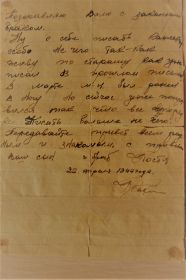 Поздравляю Вас с законным
браком.
Ну о себе писать
особо не чего так как
живу по старому как уже
писал в прошлом письме
В марте м-ц был ранен
в ногу но сейчас уже попра
вился так что все
Писать больше не чего.
Передавайте привет всем род
ным и знакомым, с приветом
Ваш сын и брат Костя
22 апреля 1944 года.